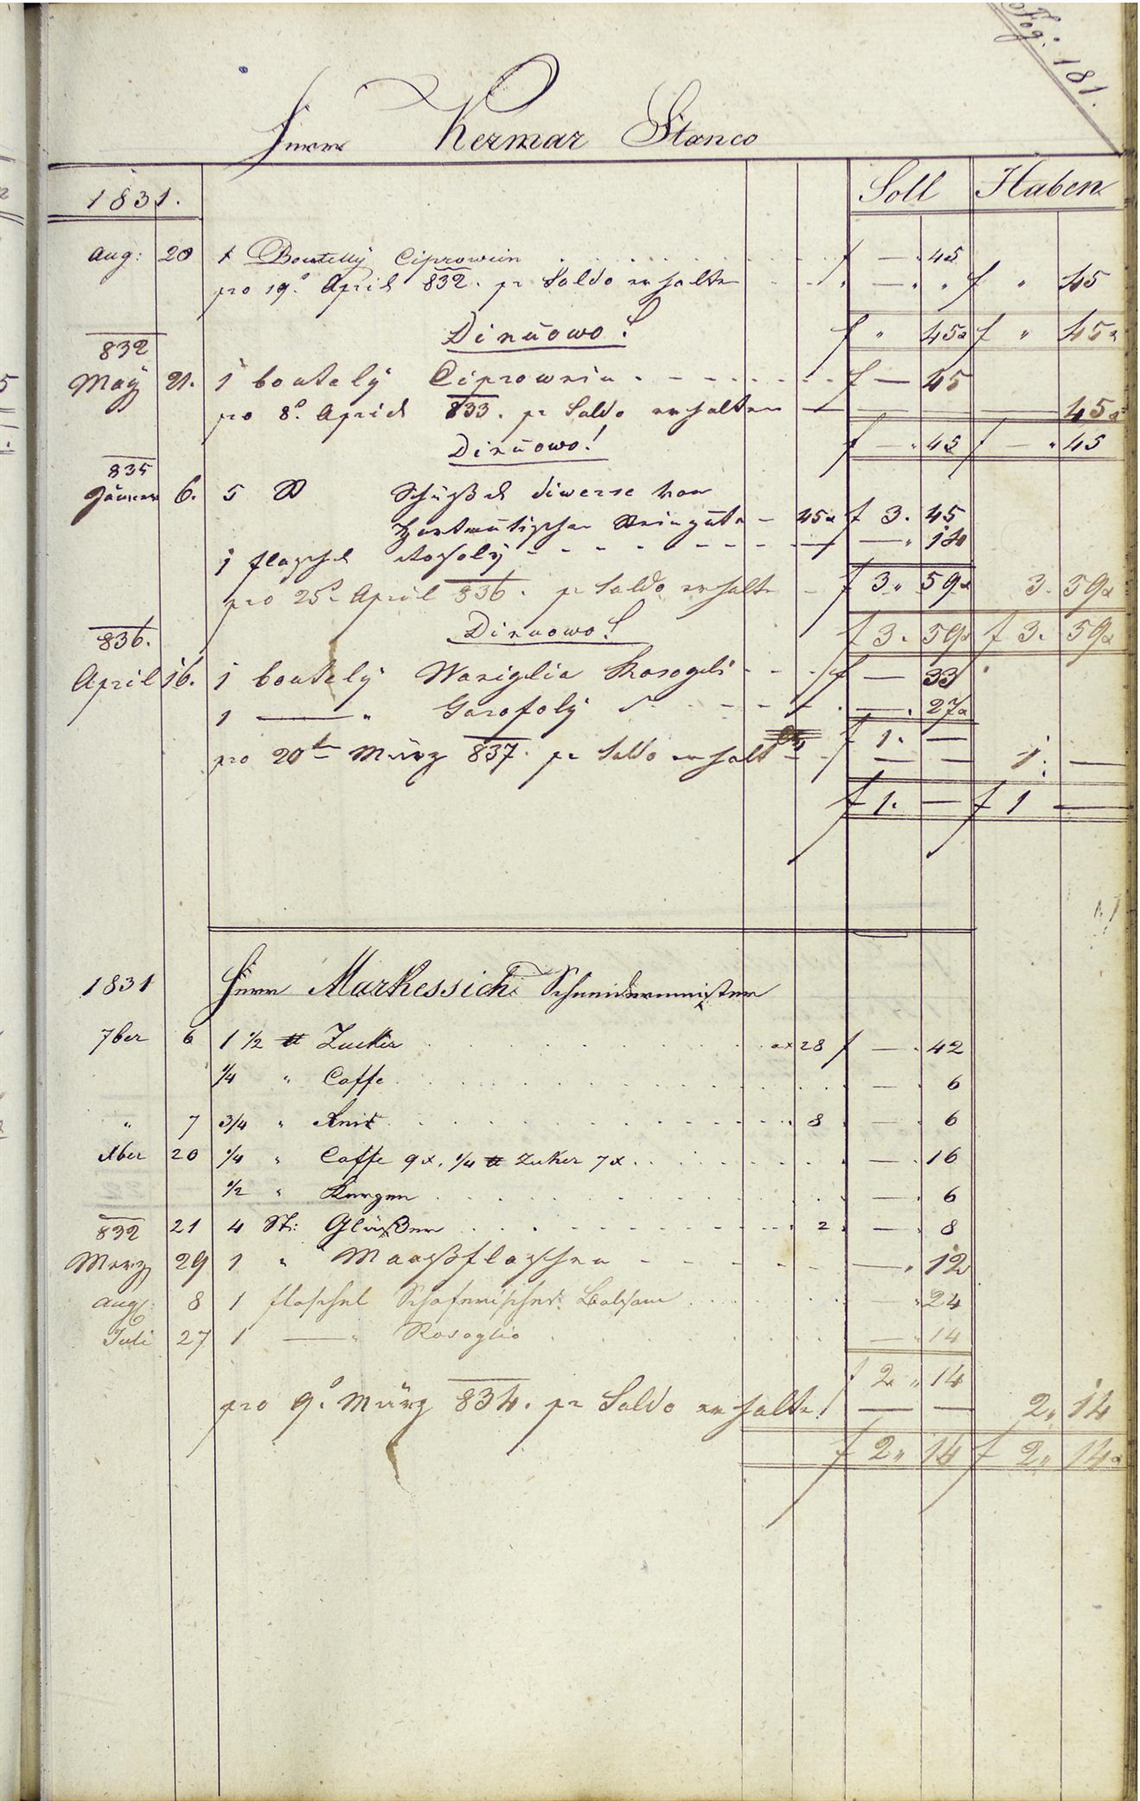 Fog: 181.
Herr Kermar Stanco
1831. Soll Haben
Aug: 20 1 Boutelly Ciprowein f — 45
pro 19° April 832. pr Saldo erhalte — " f " 45
Dinuowo! f " 45x f " 45x
832
May 21. 1 boutely Ciprowein f — 45
pro 8° April 833. pr Saldo erhalten — 45x
Dinuowo! f — 45 f — 45
835
Jänner 6. 5 Schüßel diwerse von
Steingute 45x f 3. 45
1 flaschl Rosoly — 14
pro 25° April 836. pr Saldo erhalte f 3. 59x 3. 59x
836. Dinuowo! f 3. 59x f 3. 59x
April 16. 1 boutely Waniglia Rosogli f — 33
1 — " Garofoly — 27x
f 1. —
pro 20t März 837. pr Saldo erhalt — — 1. —
f 1. — f 1 —
1831 Herr Markessich Schneidermeister
7ber 6 1 1/2 ℔ Zucker ax 28 f — 42
1/4 " Caffe — 6
" 7 3/4 " 8 — 6
Xber 20 1/4 " Caffe 9x. 1/4 ℔ Zuker 7x — 16
1/2 " Kerzen — 6
21 4 St: Gläßer 2 — 8
832
Merz 29 1 " Maaßflaschen — 12
Aug: 8 1 flaschel Balsam — 24
Juli 27 1 — " Rosoglio — 14
f 2 " 14
pro 9° März 834. pr Saldo erhalte — — 2 " 14
f 2 " 14 f 2 " 14x